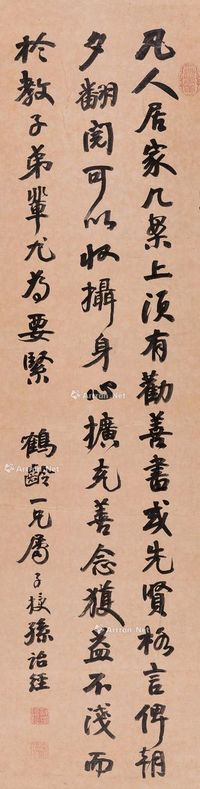 凡人居家几案上須有勸善書或先賢格言俾朝
夕翻閱可以收攝身心擴充善念獲益不淺而
於教子弟輩尤為要緊
鶴齡一兄屬 子授孫詒經